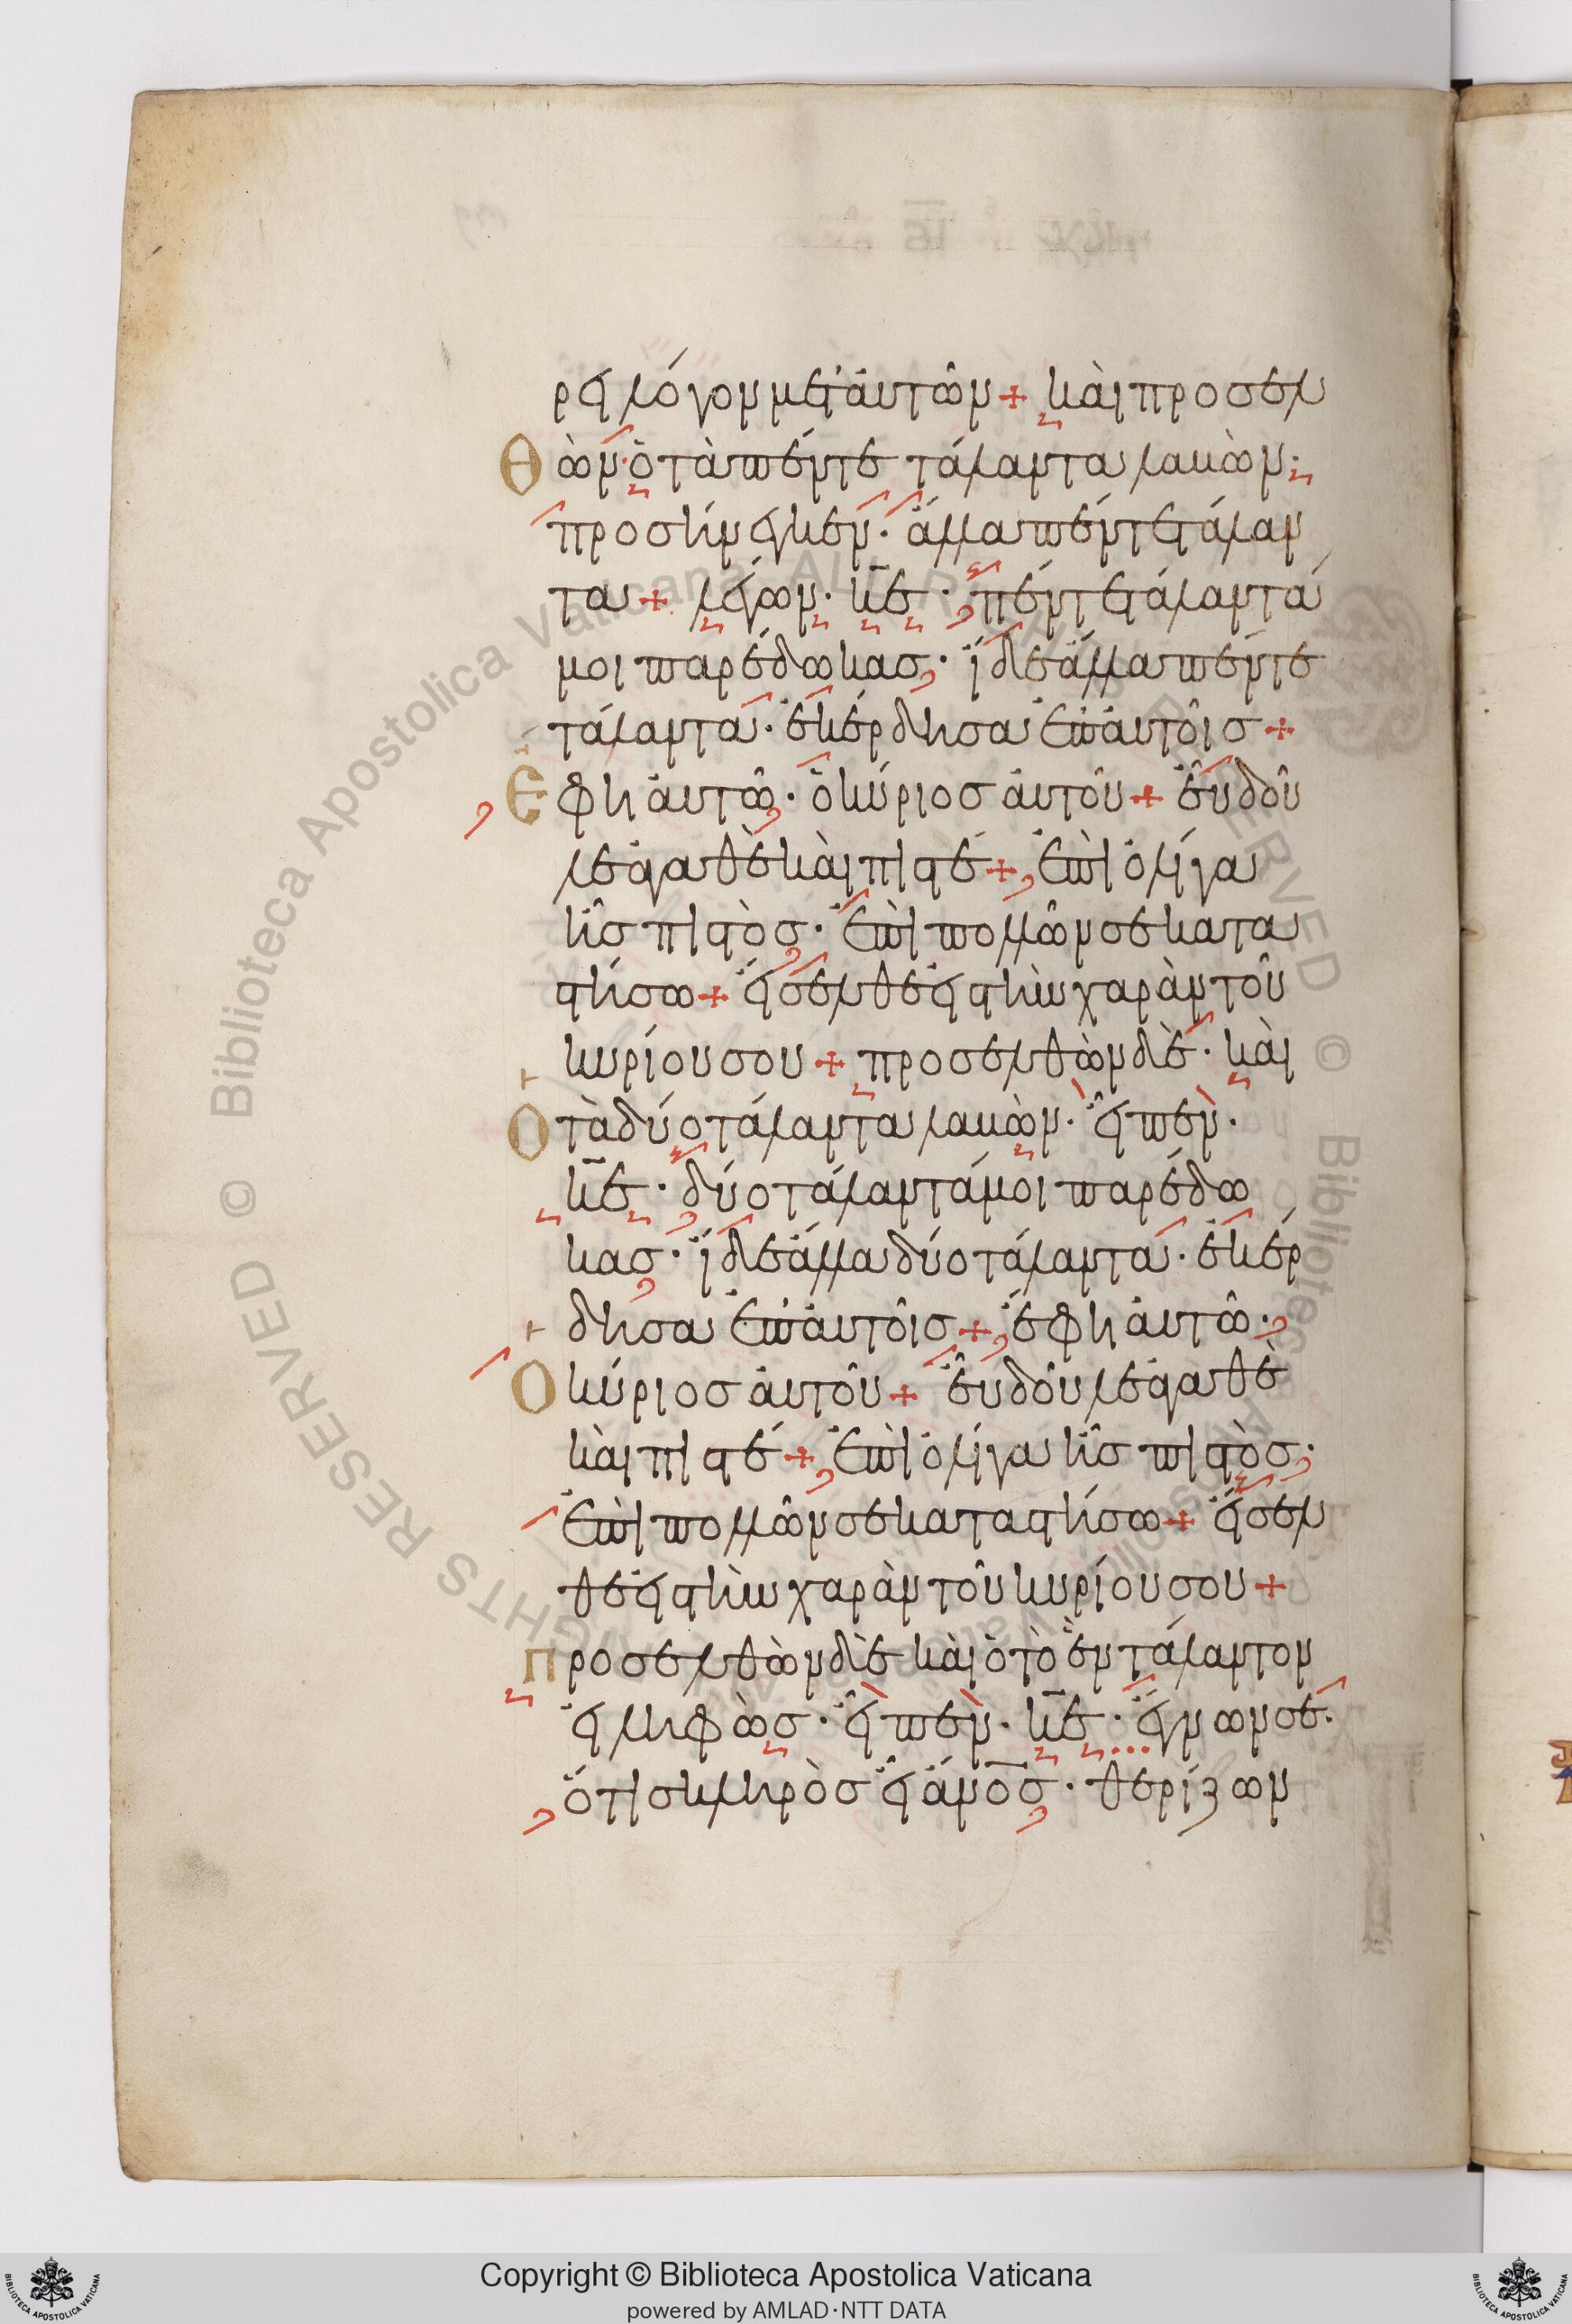 ρει λόγον μετ' ἀυτῶν + κὰι προσελ
Θὼν· ὁ τὰ πέντε τάλαντα λαβὼν·
προσήνεγκεν· ἄλλα πέντε τάλαν
τα + λέγων· κ̅ε̅· πέντε τάλαντά
μοι παρέδωκας· ἴδε ἄλλα πέντε
τάλαντα· ἐκέρδησα ἐπ' ἀυτοῖς +
Ἔφη ἀυτῶ· ὁ κύριος ἀυτοῦ + ἒυ δοῦ
λε ἀγαθὲ κὰι πιστέ + ἐπὶ ὀλίγα
ἦς πιστὸς· ἐπὶ πολλῶν σε κατα
στήσω + ἔισελθε εἰς τὴν χαρὰν τοῦ
κυρίου σου + προσελθὼν δὲ· κὰι
Ὁ τὰ δύο τάλαντα λαβὼν· εἶπεν·
κ̅ε̅· δύο τάλαντά μοι παρέδω
κας· ἴδε ἄλλα δύο τάλαντα· ἐκέρ
δησα ἐπ' ἀυτοῖς + ἔφη ἀυτῶ·
Ὁ κύριος ἀυτοῦ + ἒυ δοῦλε ἀγαθὲ
κὰι πιστέ + ἐπὶ ὀλίγα ἦς πιστὸς·
ἐπὶ πολλῶν σε καταστήσω + ἔισελ
θε εἰς τὴν χαρὰν τοῦ κυρίου σου +
Προσελθὼν δὲ κὰι ὁ τὸ ἓν τάλαντον
εἰληφὼς· εἶπεν· κ̅ε̅· ἔγνων σε·
ὅτι σκληρὸς εἶ ἄνο̅ς· θερίζων
Copyright © Biblioteca Apostolica Vaticana
powered by AMLAD·NTT DATA
© Biblioteca Apostolica Vaticana ALL RIGHTS RESERVED